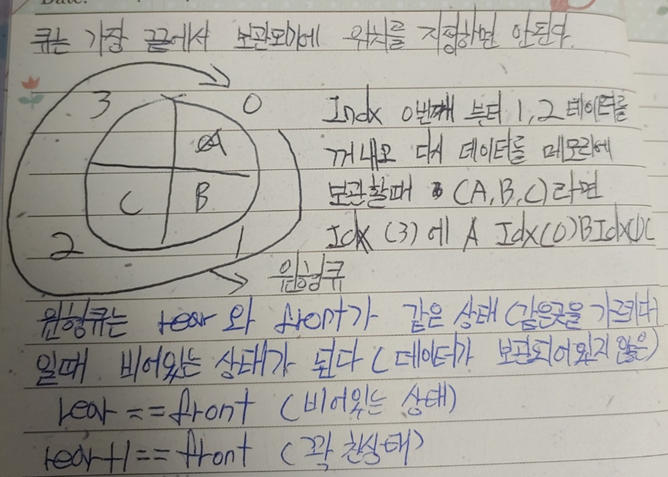 큐는 가장 끝에서 보관되기에 위치를 지정하면 안된다.
3 0
A
C B
2 1
Indx 0번째 부터 1,2 데이터를
꺼내오 다시 데이터를 메모리에
보관할때 (A,B,C)라면
Idx (3)에 A Idx(0)B Idx(1)C
원형큐
원형큐는 rear 와 front가 같은 상태 (같은곳을 가르키다)
일때 비어있는 상태가 된다 (데이터가 보관되어있지 않은)
rear == front (비어있는 상태)
rear+1 == front (꽉 찬상태)